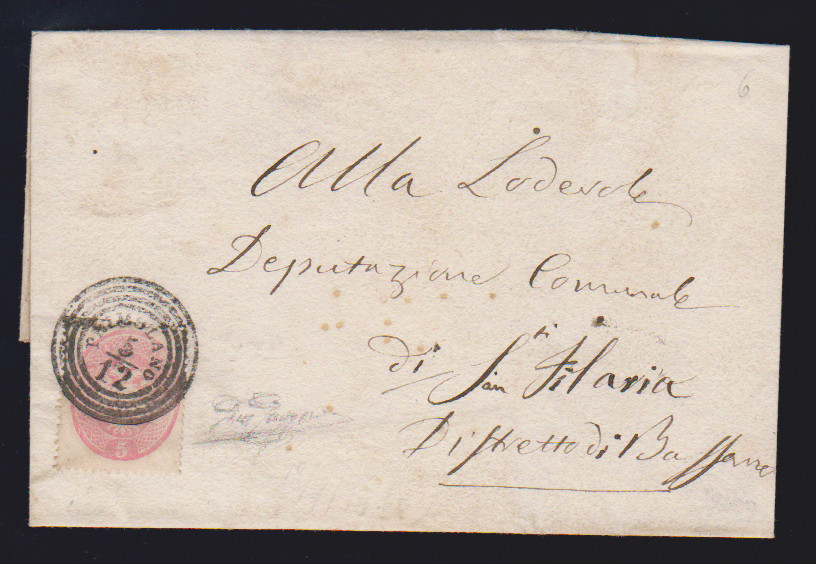 6
Alla Lodevole
Deputazione Comunale
di Sti Ilaria
San
Distretto di Bassano
PRIMOLANO
5
12
5